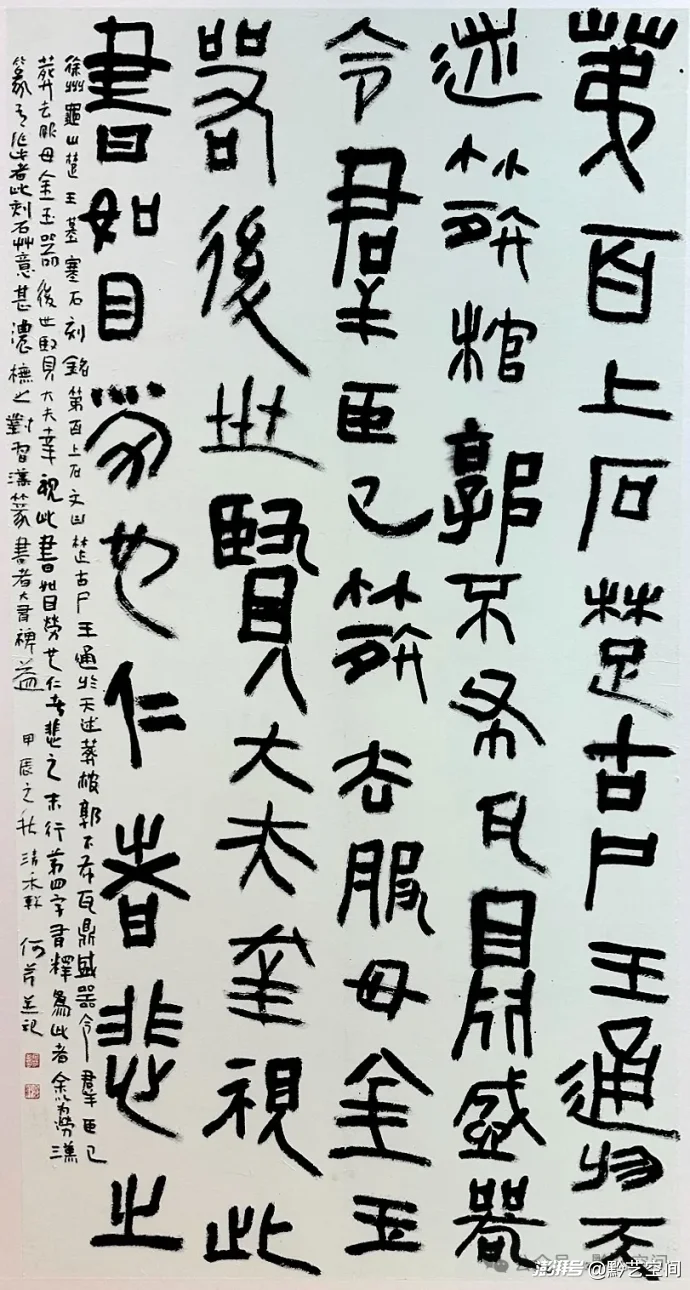 第百上石楚古尸王通於天
述葬棺郭不布瓦鼎盛器
令群臣已葬去服毋金玉
器後世賢大夫幸視此
書如目勞也仁者悲之
徐州龜山楚王墓塞石刻銘第百上石文曰楚古尸王通於天述葬棺郭不布瓦鼎盛器令群臣已
葬去服毋金玉器後世賢大夫幸視此書如目勞也仁者悲之末行第四字書釋爲此者余以爲勞漢
篆有作此者此刻石艸意甚濃橅之對習漢篆書者大有裨益 甲辰之秋 清禾軒 何並記
澎湃号@黔艺空间